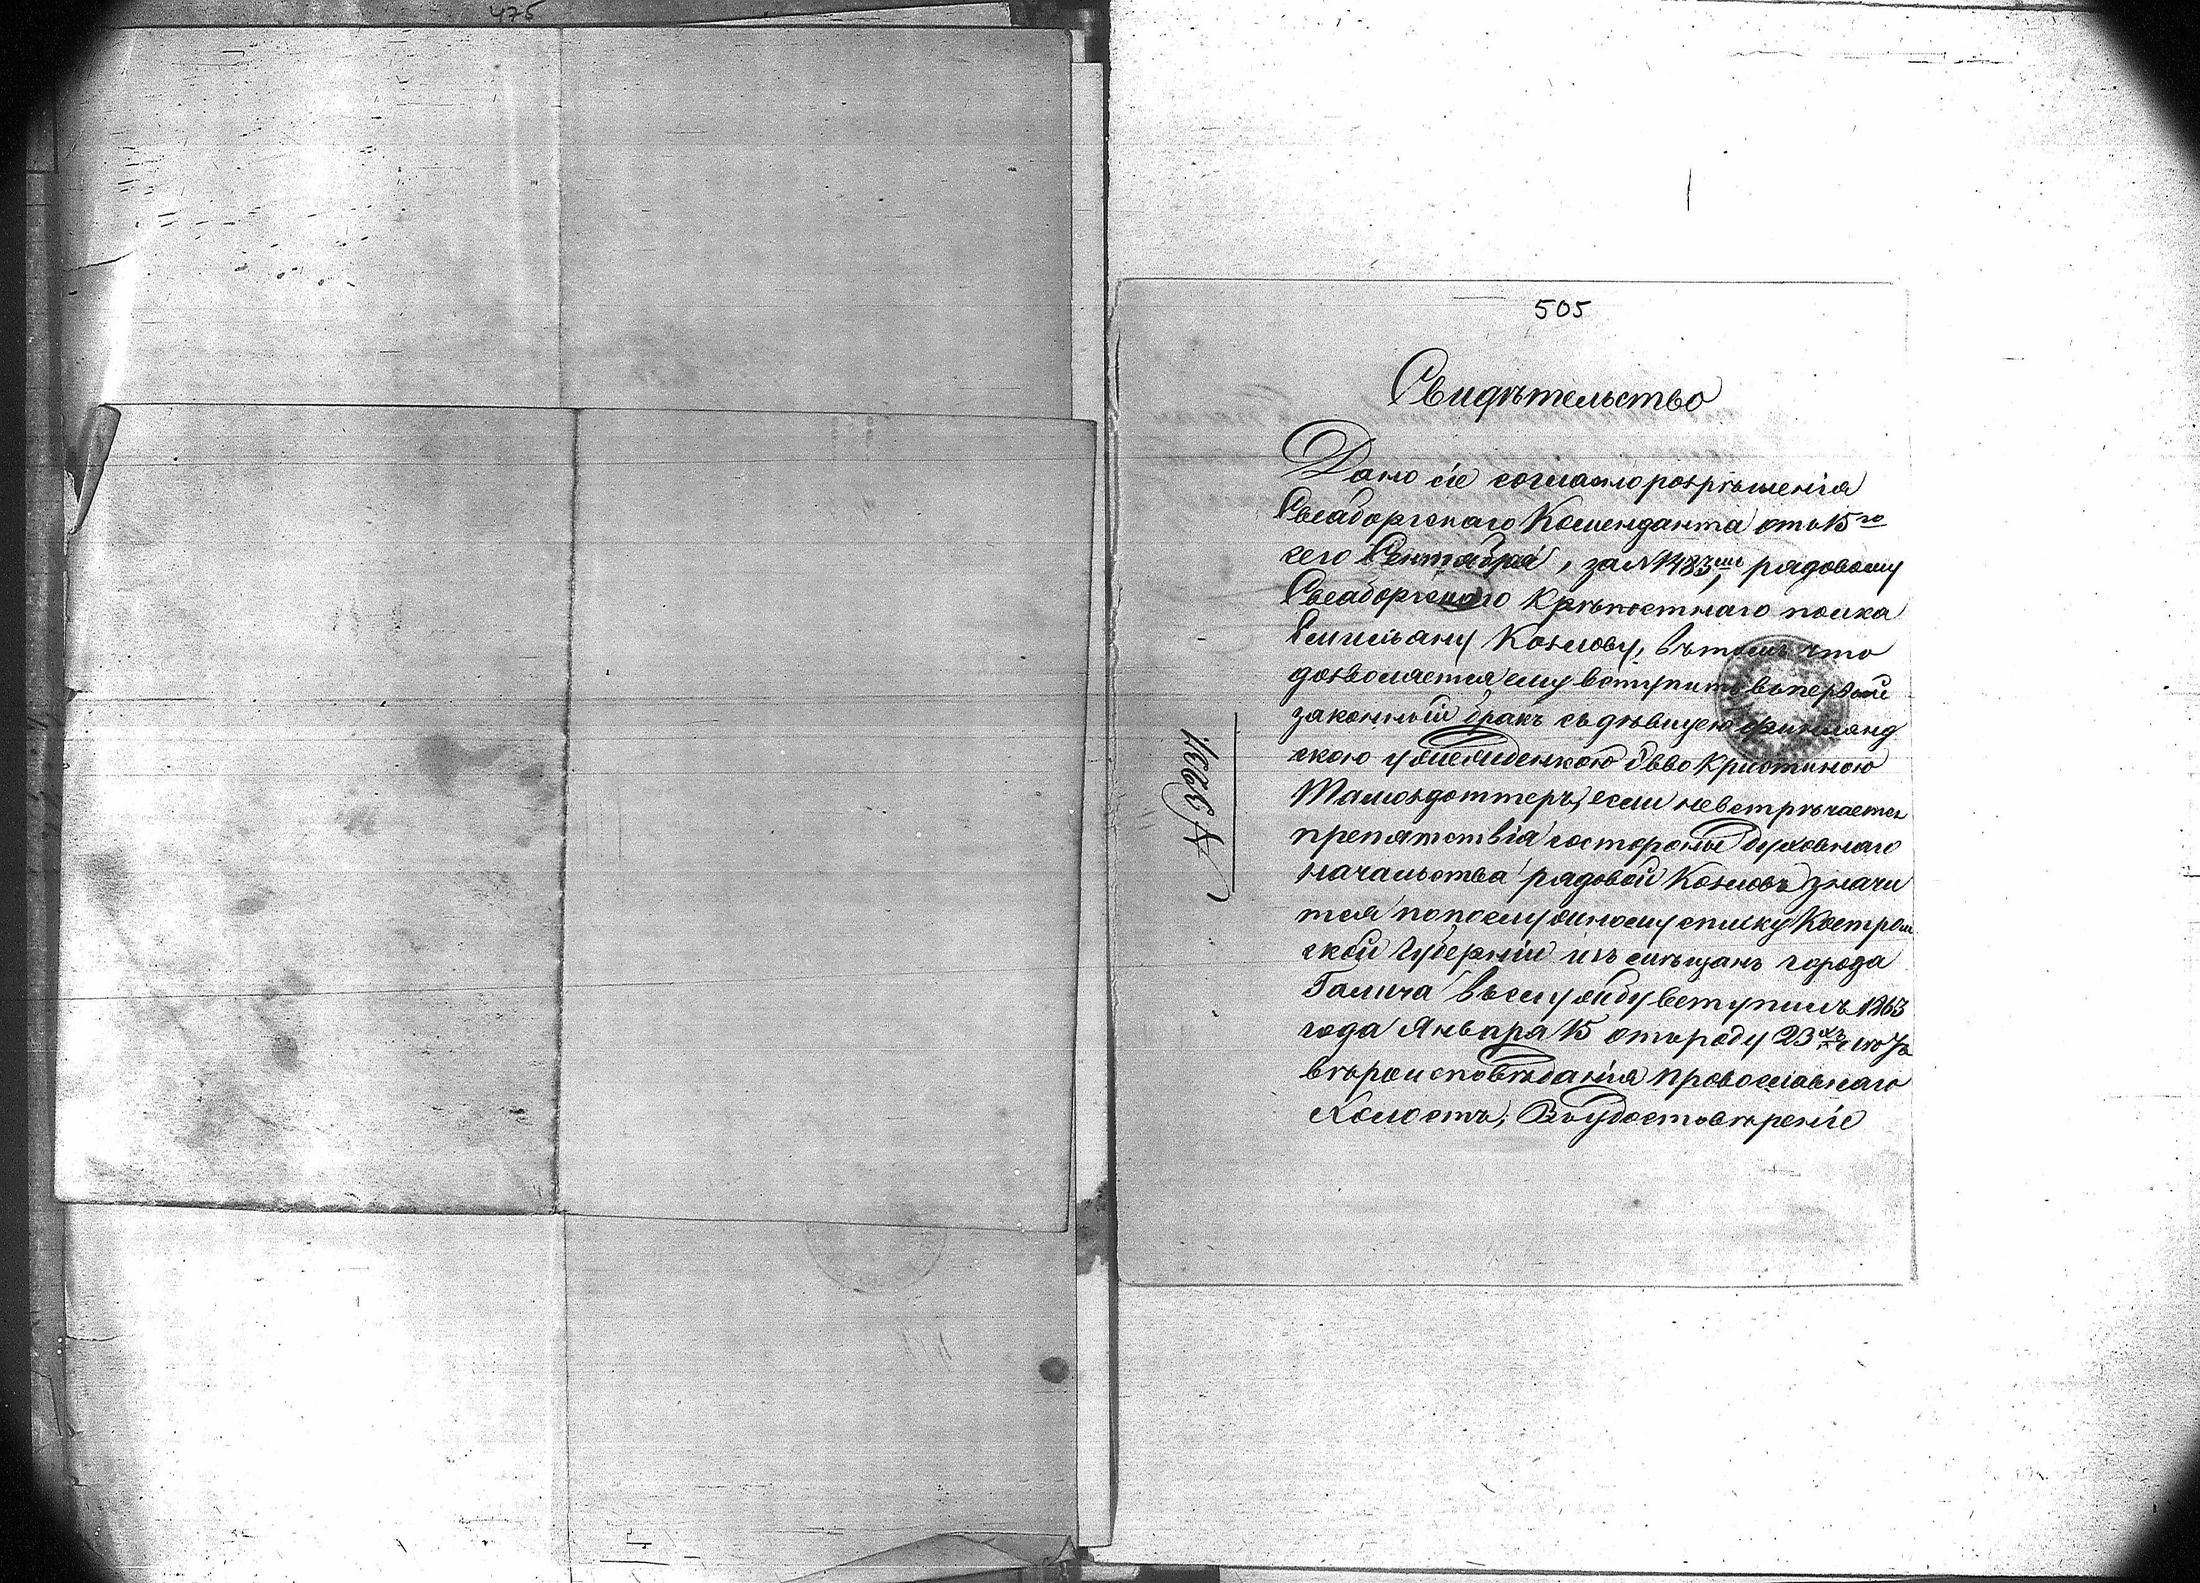 475
505
Свидѣтельство
Дано сіе согласно розрѣшенія
Свеаборгскаго Коменданта отъ 15го
сего Сентября, за № 1483мъ, рядовому
Свеаборгскаго Крѣпостнаго полка
Емильяну Козлову, въ томъ что
дозволяется ему вступить въ первой
законный бракъ съ дѣвицею финлянд
скою Евво Кристиною
если невстрѣчается
препятствія состороны Духовнаго
начальства рядовой Козловъ значи
тся попослужному списку Костром
ской Губерніи изъ мѣщанъ города
Галича въ службу вступилъ 1863
года Января 15 отъ роду 23хъ
вѣроисповѣданія провославнаго
Холостъ, Въ удостовѣреніе